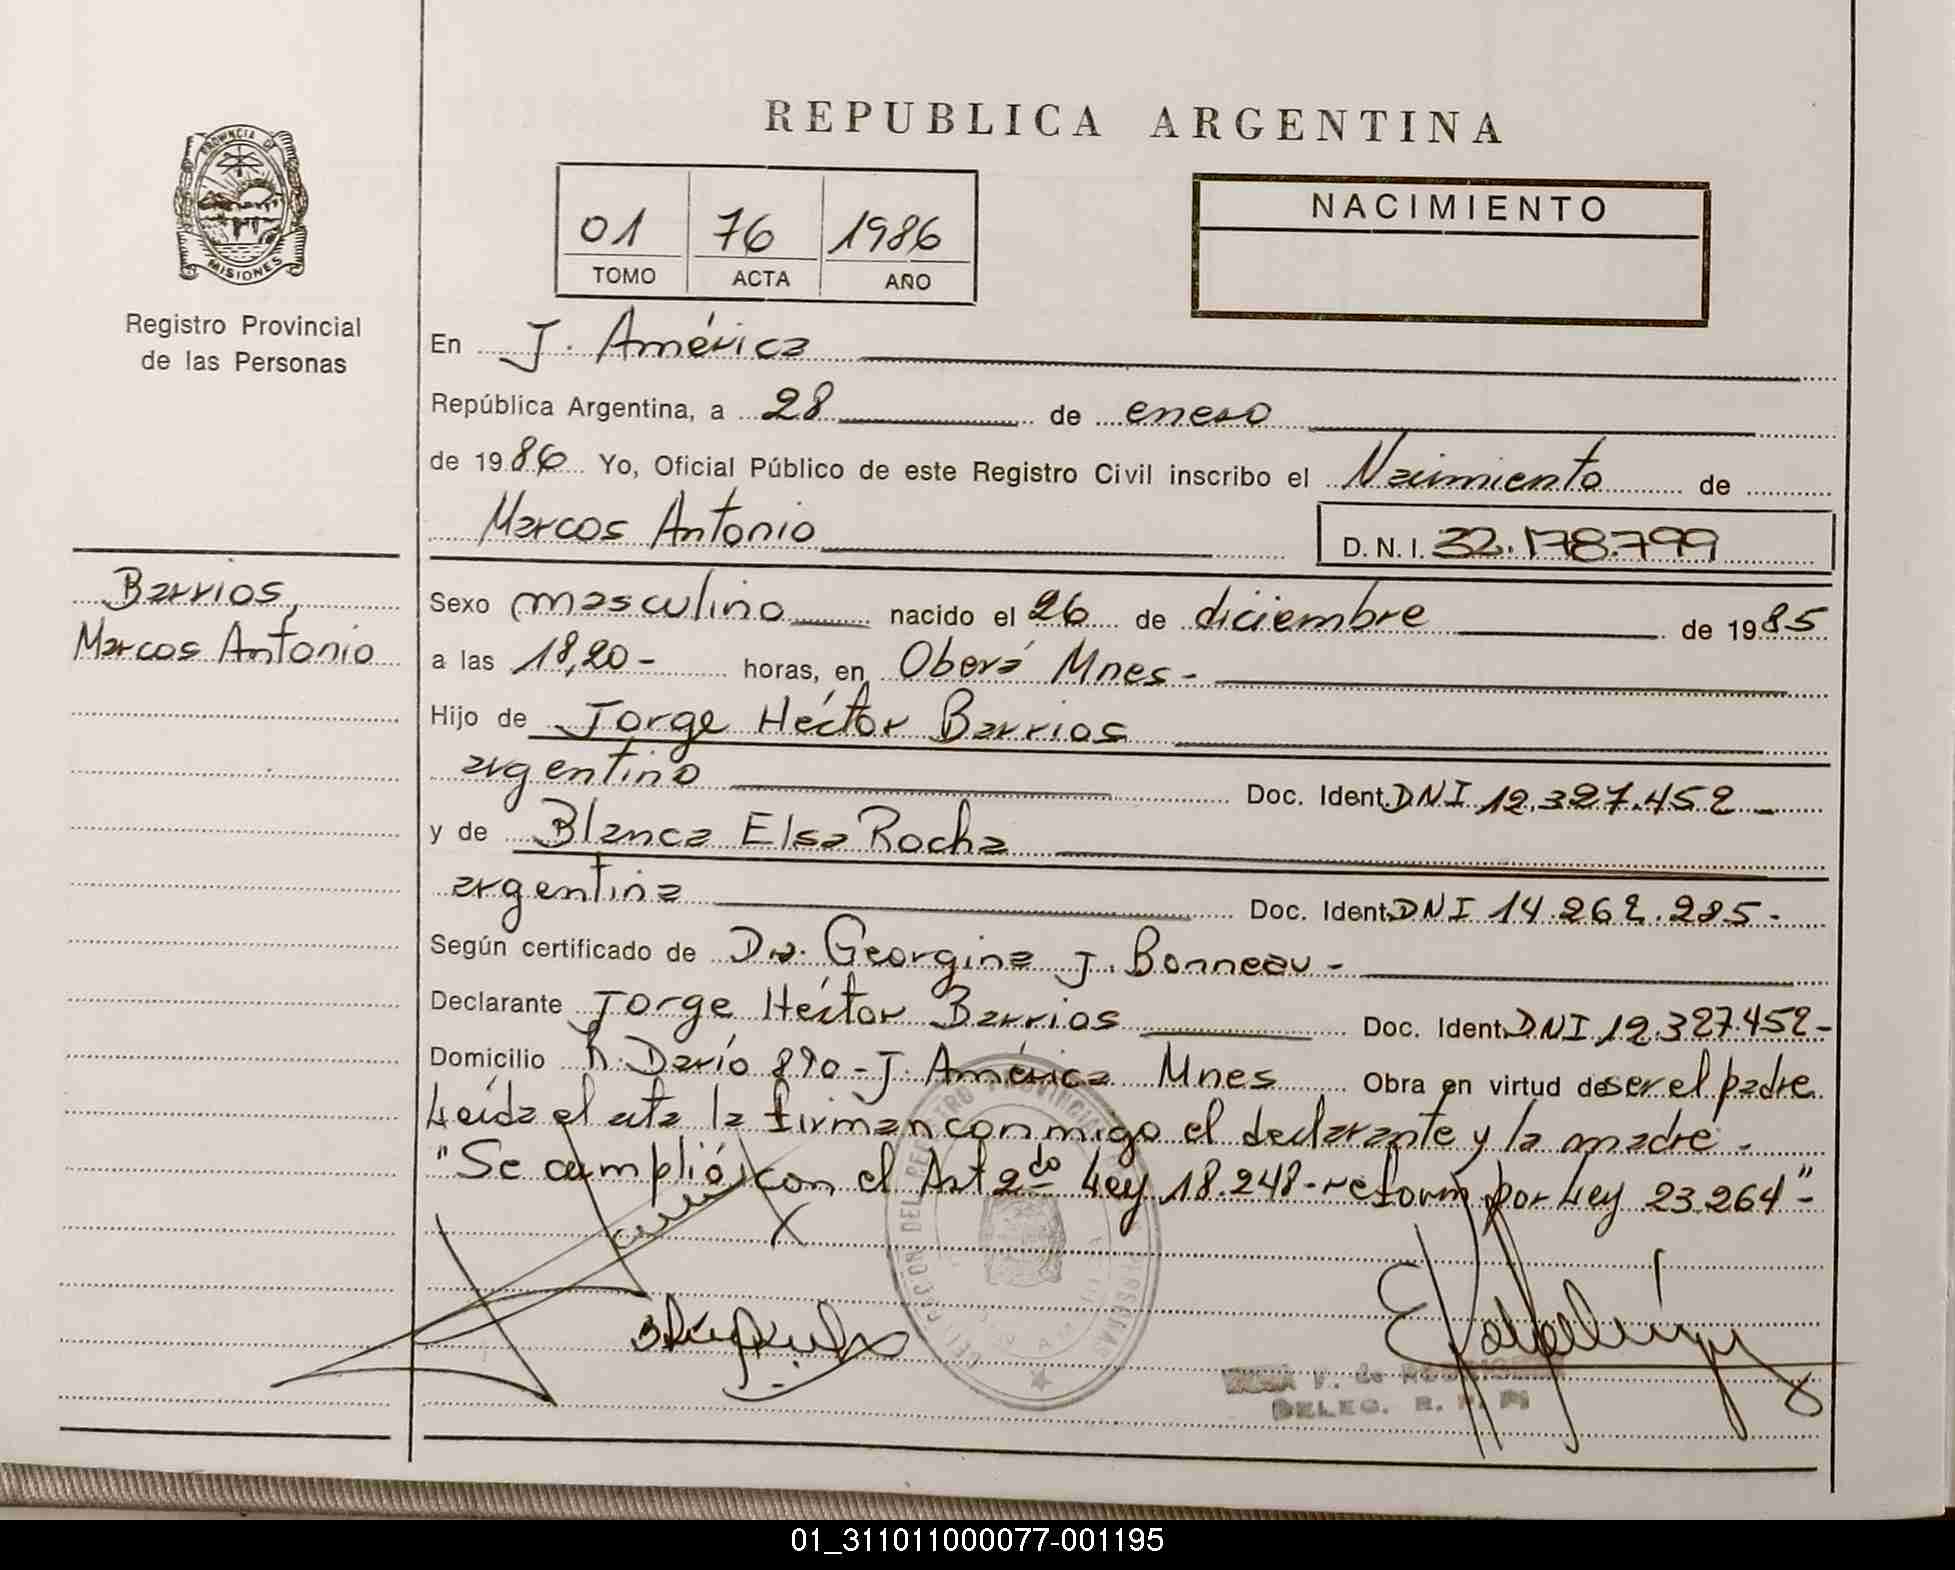 REPUBLICA ARGENTINA
PROVINCIA DE
MISIONES
Registro Provincial
de las Personas
01 76 1986
TOMO ACTA AÑO
NACIMIENTO
En J. América
República Argentina, a 28 de enero
de 1986 Yo, Oficial Público de este Registro Civil inscribo el Nacimiento de
Marcos Antonio D.N.I. 32.178.799
Barrios,
Marcos Antonio
Sexo masculino nacido el 26 de diciembre de 1985
a las 18,20- horas, en Oberá Mnes-
Hijo de Jorge Héctor Barrios
argentino Doc. Ident. DNI 12.327.452-
y de Blanca Elsa Rocha
argentina Doc. Ident. DNI 14.262.285-
Según certificado de Dra. Georgina J. Bonneau-
Declarante Jorge Héctor Barrios Doc. Ident. DNI 12.327.452-
Domicilio R. Darío 890-J. América Mnes Obra en virtud de ser el padre
Leída el acta la firman conmigo el declarante y la madre.
"Se cumplió con el Art 2do Ley 18.248-reform por Ley 23.264"-
DELEG. R. P. P.
01_311011000077-001195